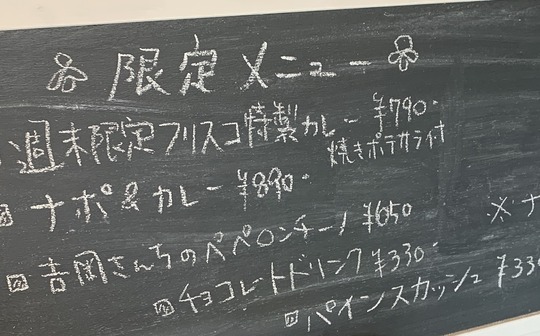 限定メニュー
週末限定フリスコ特製カレー ¥790-
焼きポテサラ付
ナポ&カレー ¥890-
吉岡さんちのペペロンチーノ ¥650
※ナ
チョコレートドリンク ¥330-
パインスカッシュ ¥330